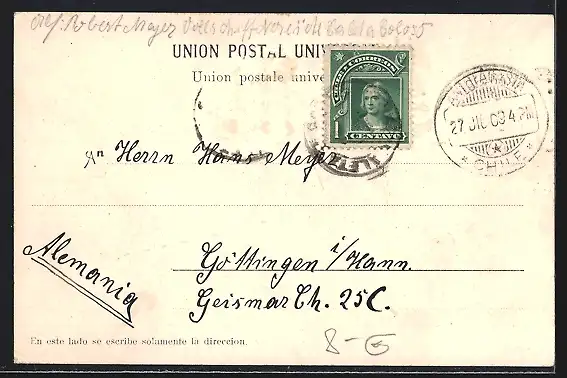 Robert Meyer
UNION POSTAL UNI
Union postale unive
CHILE CORREOS
1 CENTAVO
27 DIC 03 4 PM
CHILE
An Herrn Hans Meyer
Göttingen i/Hann.
Geismar Ch. 25C.
Alemania
En este lado se escribe solamente la direccion.
8-